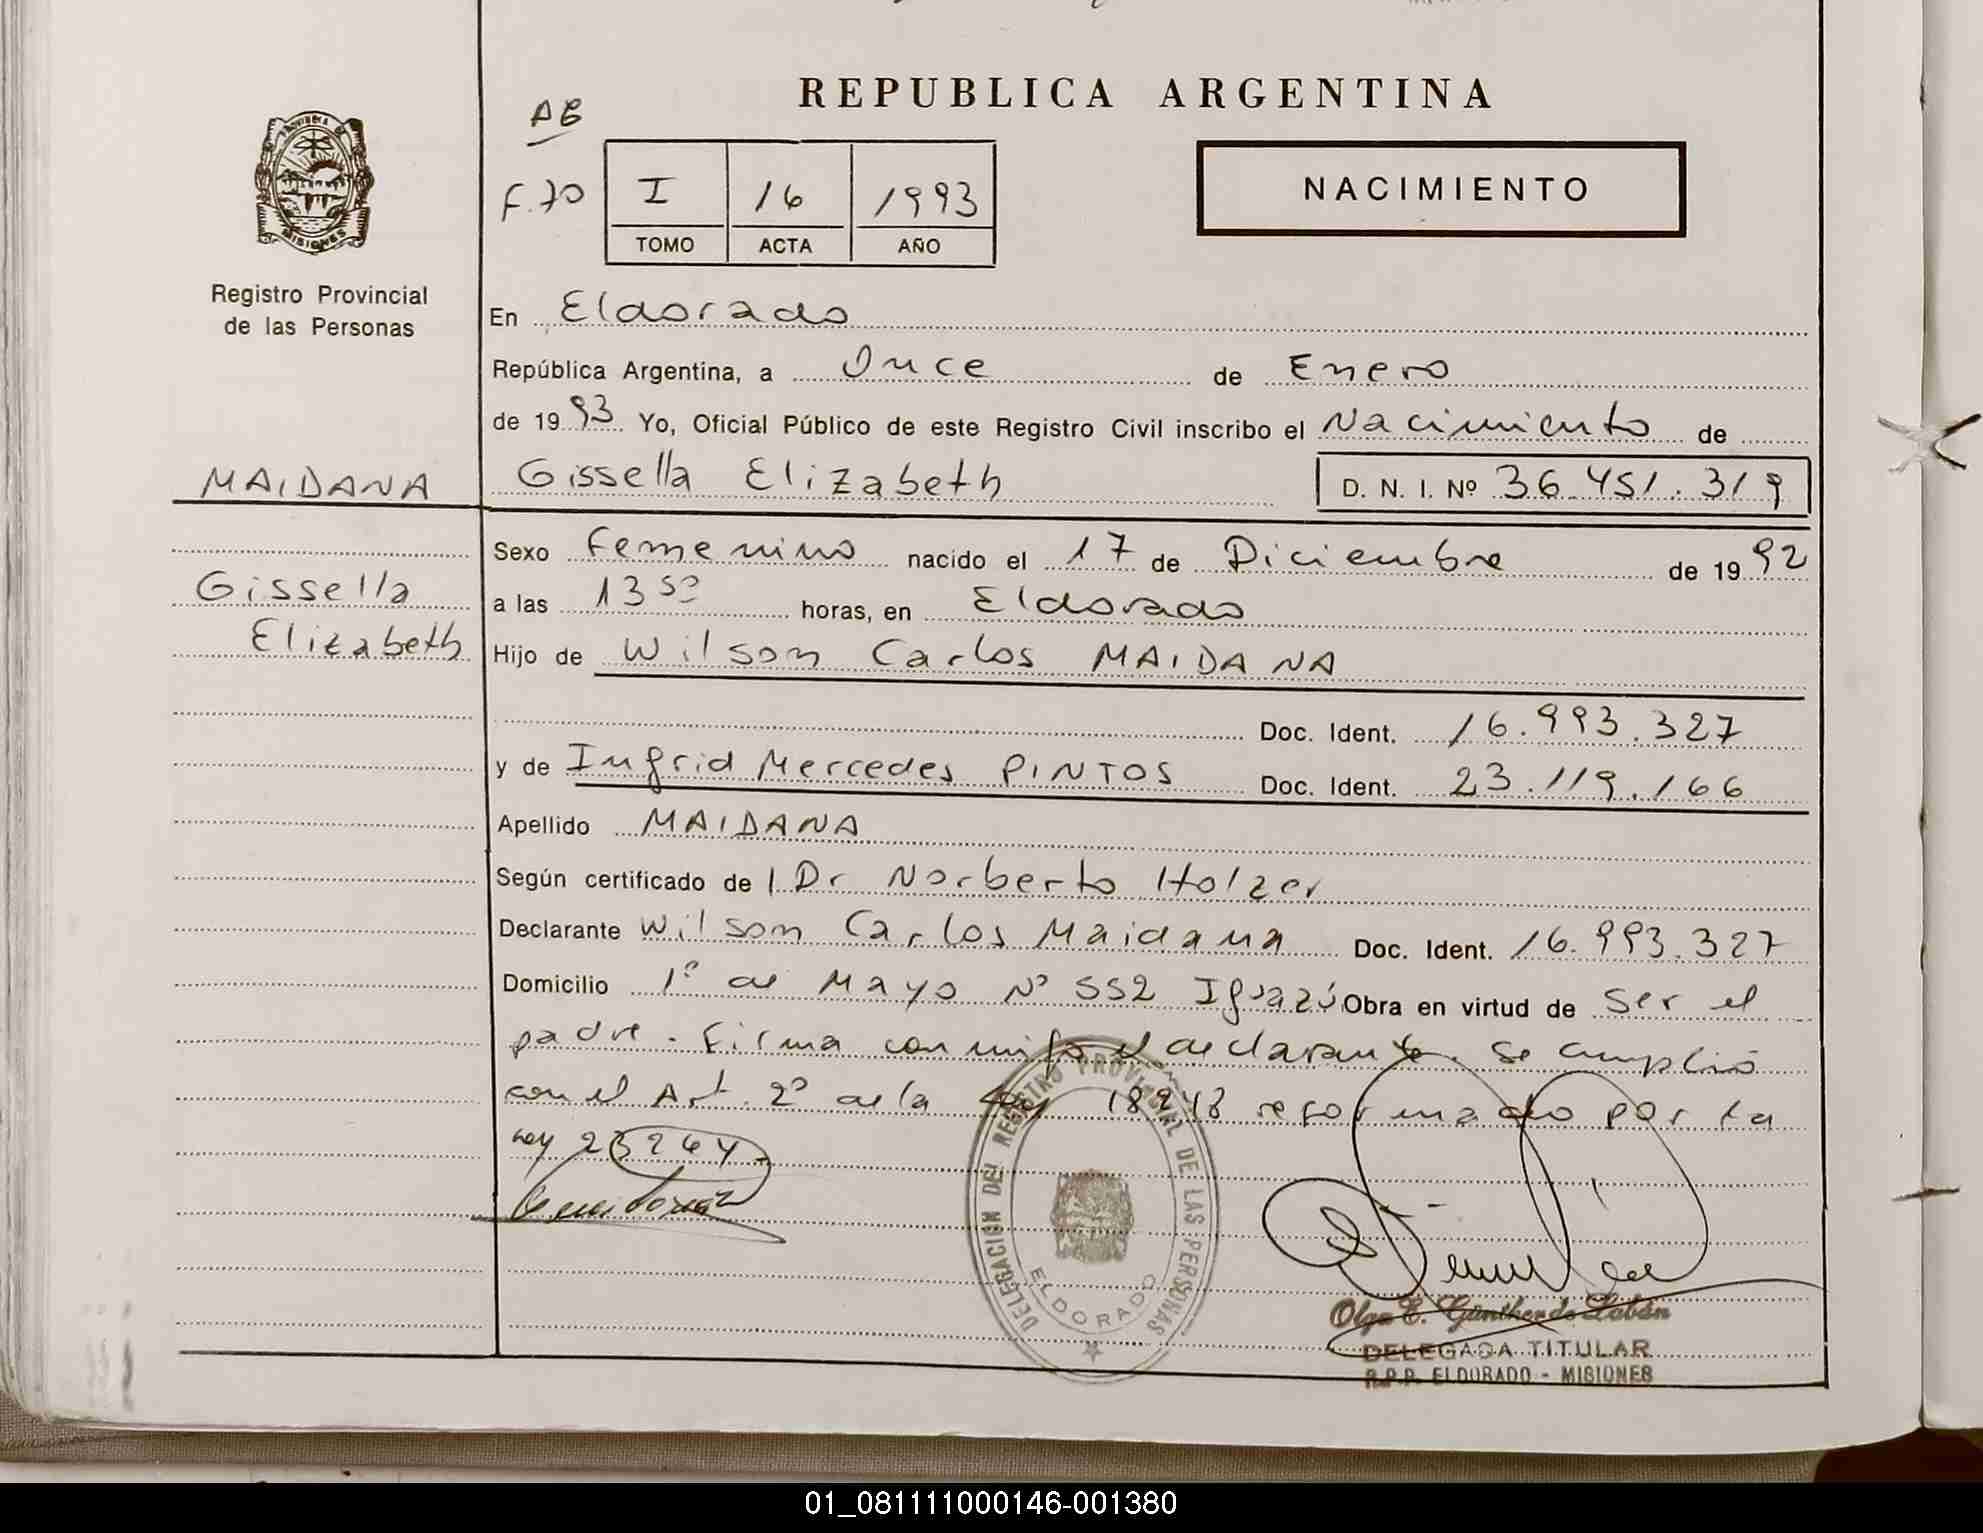 REPUBLICA ARGENTINA
AB
F. 70
I 16 1993
TOMO ACTA AÑO
NACIMIENTO
PROVINCIA DE
MISIONES
Registro Provincial
de las Personas
En Eldorado
República Argentina, a Once de Enero
de 1993 Yo, Oficial Público de este Registro Civil inscribo el Nacimiento de
MAIDANA Gissella Elizabeth D. N. I. Nº 36.451.319
Sexo Femenino nacido el 17 de Diciembre de 1992
Gissella
a las 13 50 horas, en Eldorado
Elizabeth
Hijo de Wilson Carlos MAIDANA
Doc. Ident. 16.993.327
y de Ingrid Mercedes PINTOS Doc. Ident. 23.119.166
Apellido MAIDANA
Según certificado de Dr Norberto Holzer
Declarante Wilson Carlos Maidana Doc. Ident. 16.993.327
Domicilio 1º de Mayo Nº 552 Iguazú Obra en virtud de ser el
padre. Firma conmigo el declarante. Se cumplió
con el Art. 2º de la Ley 18248 reformado por la
Ley 23264.
DELEGACION DEL REGISTRO PROVINCIAL DE LAS PERSONAS
ELDORADO
Olga E. Günther de Labán
DELEGADA TITULAR
R.P.P. ELDORADO - MISIONES
01_081111000146-001380